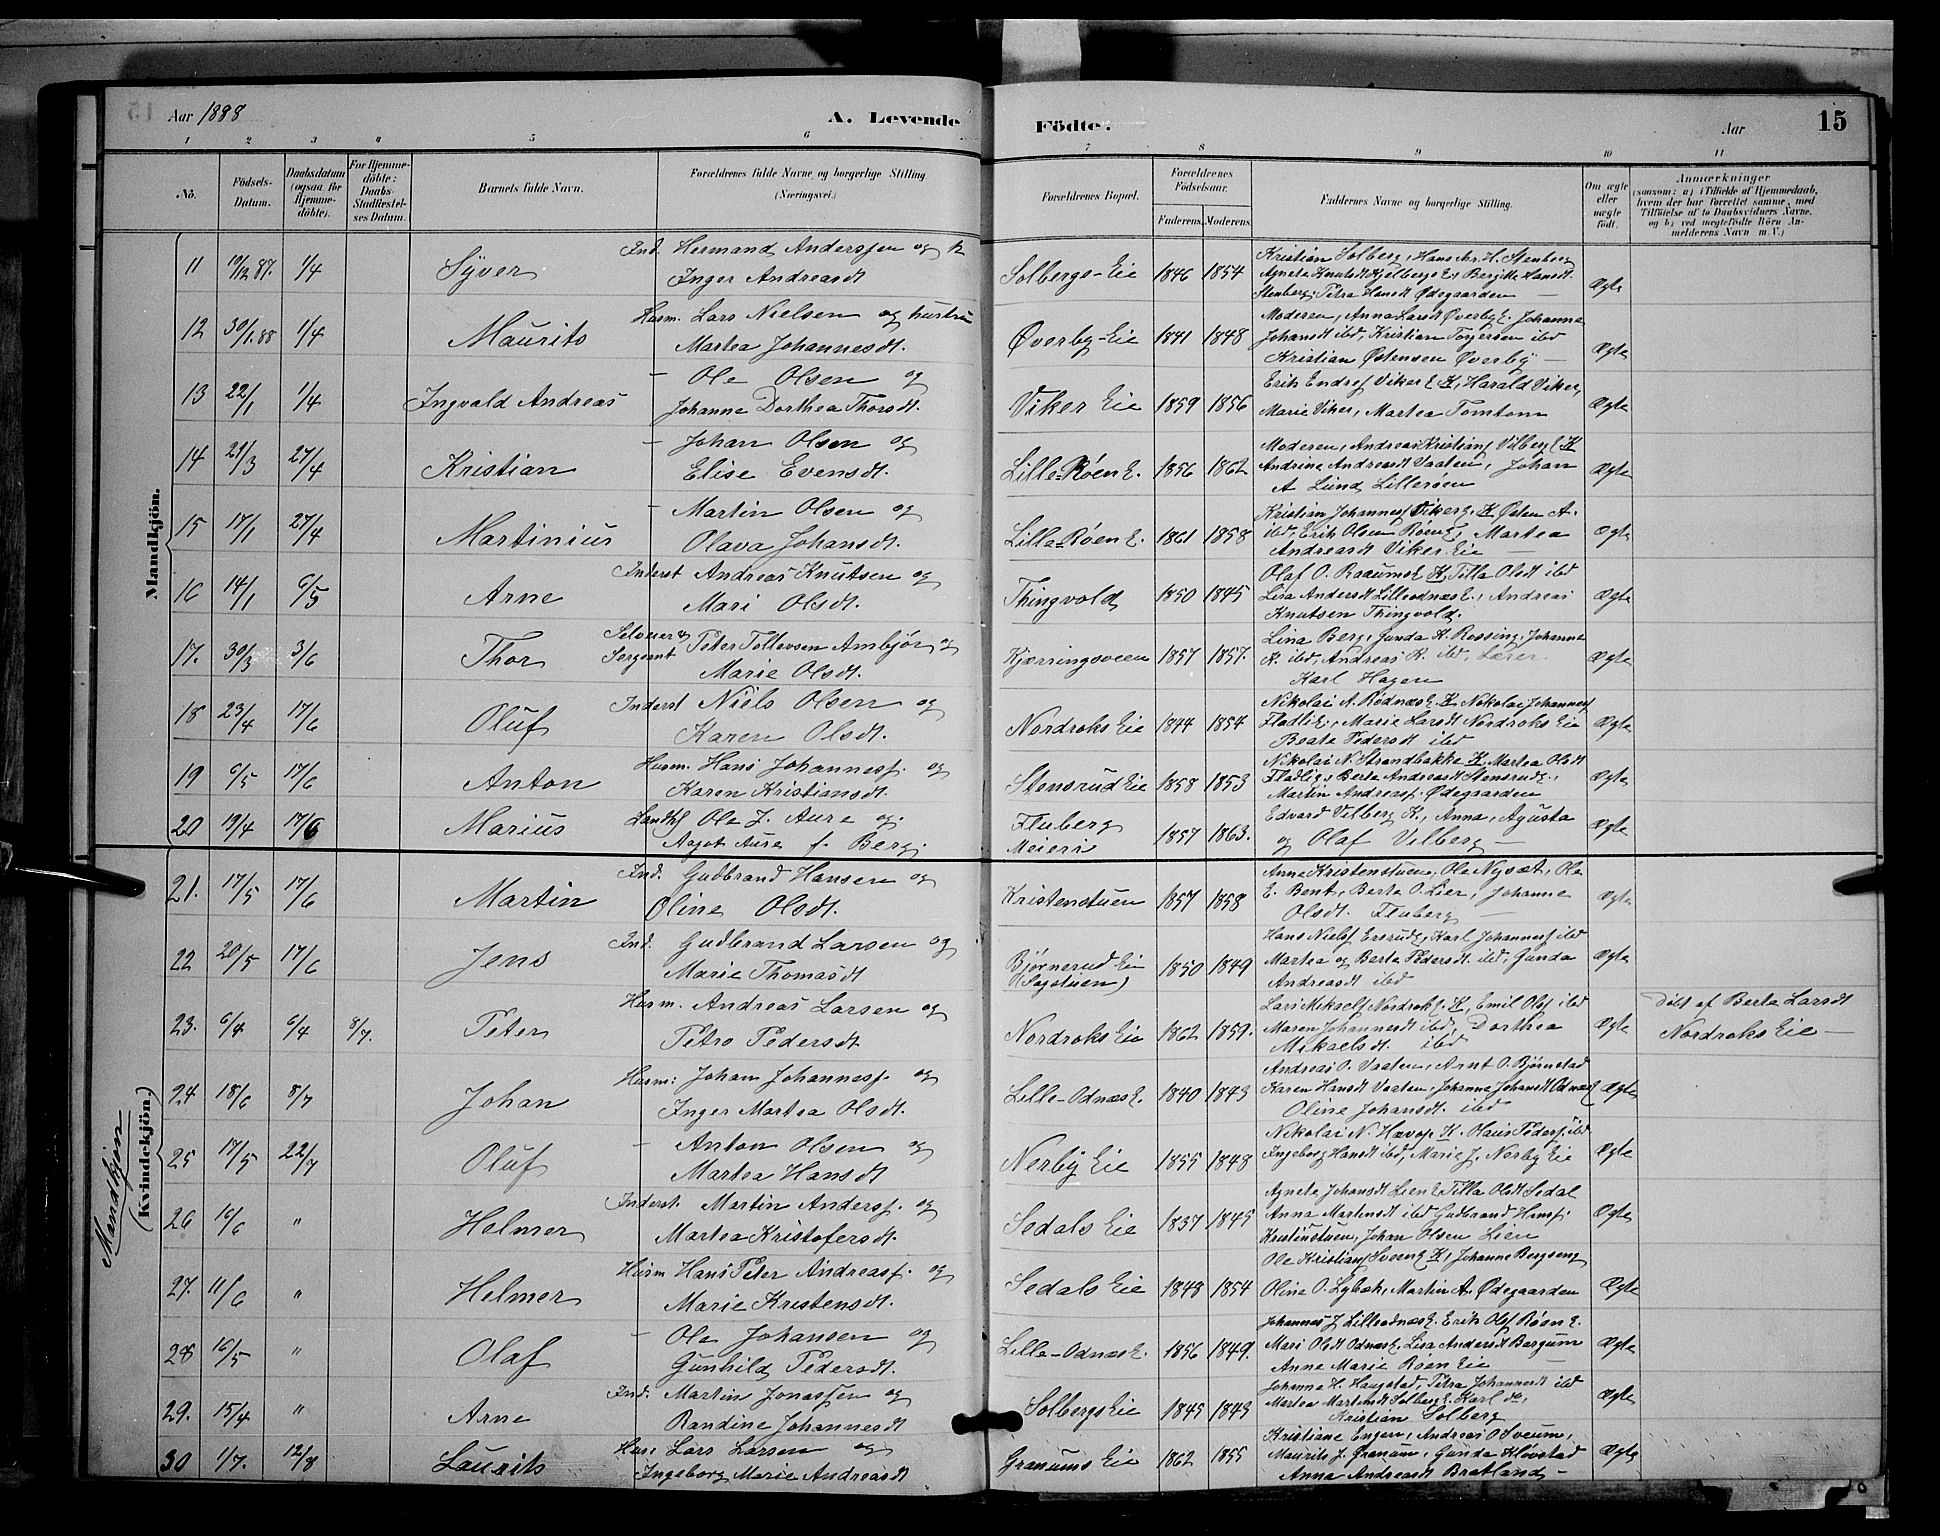 Aar 1888
A. Levende
Födte.
Aar
15
1 2 3 4 5 6 7 8 9 10 11
No.
Födsels-Datum.
Daabsdatum (ogsaa for Hjemmedöbte).
For Hjemmedöbte: Daabs-Stadfæstelses Datum.
Barnets fulde Navn.
Forældrenes fulde Navne og borgerlige Stilling (Næringsvei.)
Forældrenes Bopæl.
Forældrenes Födselsaar.
Faderens. Moderens.
Faddernes Navne og borgerlige Stilling.
Om ægte eller uægte födt.
Anmærkninger
(saasom: a) i Tilfælde af Hjemmedaab, hvem der har forrettet samme, med Tilföielse af to Daabsvidners Navne. og b) ved uægtefödte Börn Anmelderens Navn m. V.)
Mandkjön.
11 10/12 87. 1/4 Syver Ind. Hermand Anderssen og h Solbergs-Eie 1846 1854 Kristian Solberg, Hans Kr. H. Stenberg
Inger Andreasdt Agnete Knutsdt Kjelbergs E., Bergitte Hansdt. Ægte
Stenberg, Petra Hansdt Ødegaarden —
12 30/1.88 1/4 Maurits Husm. Lars Nielsen og hustru Øverby-Eie 1841 1848 Moderen, Anna Larsdt Øverby E. Johanne
Martea Johannesdt. Johansdt ibd, Kristian Torjersen ibd Ægte
Kristian Østensen Øverby —
13 22/1 1/4 Ingvald Andreas — Ole Olsen og Viker Eie 1859 1856 Erik Endres. Viker E. K, Harald Viker,
Johanne Dorthea Thorsdt. Marie Viker, Martea Tomtom Ægte
14 21/3 27/4 Kristian — Johan Olsen og Lille-Røen E. 1856 1862 Moderen, Andreas Kristians. Vilberg E. K
Elise Evensdt. Andrine Andreasdt Vaaten, Johan Ægte
A Lund Lillerøen
15 17/1 27/4 Martinius — Martin Olsen og Lille-Røen E. 1861 1858 Kristian Johannes. Viker E. K, Østen A.
Olava Johansdt. ibd, Erik Olsen Røen E, Martea Ægte
Andreasdt Viker Eie —
16 14/1 6/5 Arne Inderst Andreas Knutsen og Thingvold 1850 1845 Olaf O. Raaums E. K, Tilla Olsdt ibd
Mari Olsdt. Lisa Andersdt Lilleodnæs E., Andreas Ægte
Knutsen Thingvold.
17. 30/3 3/6 Thor Selveier & Sergeant Peter Tollevsen Ambjør og Kjærringsveen 1857 1857. Lina Berg, Gunda K. Rossing, Johanne
Marie Olsdt. K. ibd, Andreas K. ibd, Lærer Ægte
Karl Hagen
18 23/4 17/6 Oluf Inderst Niels Olsen og Nordroks Eie 1844 1854 Nikolai A. Rødnæs E. K, Nikolai Johannes.
Karen Olsdt. Fladli E., Marie Larsdt Nordroks Eie Ægte
Beate Pedersdt ibd
19 6/5 17/6 Anton Husm. Hans Johannesf. og Stensrud Eie 1858 1853 Nikolai N. Strandbakke K, Martea Olsdt
Karen Kristiansdt. Fladlig, Berte Andreasdt Stensrud E., Ægte
Martin Andreasf. Ødegaarden
20 19/4 17/6 Marius Landh. Ole J. Aure og Fluberg Meieri 1857 1863. Edvard Vilberg K., Anna, Agusta
Aagot Aure f. Berg. og Olaf Vilberg — Ægte
Mandkjön
(Kvindekjön.)
21. 17/5 17/6 Martin Ind. Gudbrand Hansen og Kristenstuen 1857 1858 Anne Kristenstuen, Ole Nysæt, Ole
Oline Olsdt. E. Bent, Berte O. Lier, Johanne Ægte
Olsdt. Fluberg —
22 20/5 17/6 Jens Ind. Gudbrand Larsen og Bjørnerud Eie (Sagstuen) 1850 1849 Hans Niels. Ersrud, Karl Johannesf ibd
Marie Thomasdt Martea og Berte Pedersdt. ibd, Gunda Ægte
Andreasdt ibd
23. 6/4 6/4 8/7. Peter Husm. Andreas Larsen og Nordroks Eie 1862 1859. Lars Mikaels. Nordrok E. K, Emil Ols. ibd døbt af Berte Larsdt
Petro Pedersdt. Maren Johannesdt ibd, Dorthea Ægte Nordroks Eie —
Mikaelsdt. ibd
24 18/6 8/7 Johan Husm: Johan Johannesf. og Lille-Odnæs E. 1840 1843 Andreas O. Vaaten, Arnt O. Bjørnstad
Inger Martea Olsdt. Karen Hansdt Vaaten, Johanne Johansdt Odnæs E Ægte
Oline Johansdt. ibd
25 17/5 22/7 Oluf — Anton Olsen og Nerby Eie 1855 1848 Nikolai N. Hævop. K. Olaus Pedersf. ibd
Martea Hansdt Ingeborg Hansdt ibd, Marie J. Nerby Eie Ægte
26 16/6 " Helmer Inderst. Martin Andersf. og Sedals Eie 1857 1845 Agnete Johansdt Lien E. Tilla Olsdt Sedal
Martea Kristofersdt. Anna Martinsdt ibd Gudbrand Hansf. Ægte
Kristinstuen, Johan Olsen Lien
27. 11/6 " Helmer Husm Hans Peter Andreasf. og Sedals Eie 1848 1854 Ole Kristians. Sveen E. K, Johanne Bergseng
Marie Kristensdt. Oline O. Lybæk, Martin A. Ødegaarden Ægte
28 16/5 " Olaf — Ole Johansen og Lille-Odnæs E. 1856 1849. Johannes J. Lilleodnæs E. Erik Ols. Røen E.
Gunhild Pedersdt. Mari Olsdt Odnæs E, Lisa Andersdt Bergum Ægte
Anne Marie Roen Eie —
29. 15/4 " Arne Ind. Martin Jonassen og Solbergs Eie 1845 1843 Johanne H. Haugstad, Petra Johannesdt ibd
Randine Johannesdt Martea Martinsdt Solberg E. Karl do, Ægte
Kristian Solberg
30 1/7. 12/8 Laurits Hus: Lars Larsen og Granums Eie 1862 1855 Kristiane Engen, Andreas O Sveum,
Ingeborg Marie Andreasdt Maurits J. Granum, Gunda Kløvstad Ægte
Anna Andreasdt Bratland —